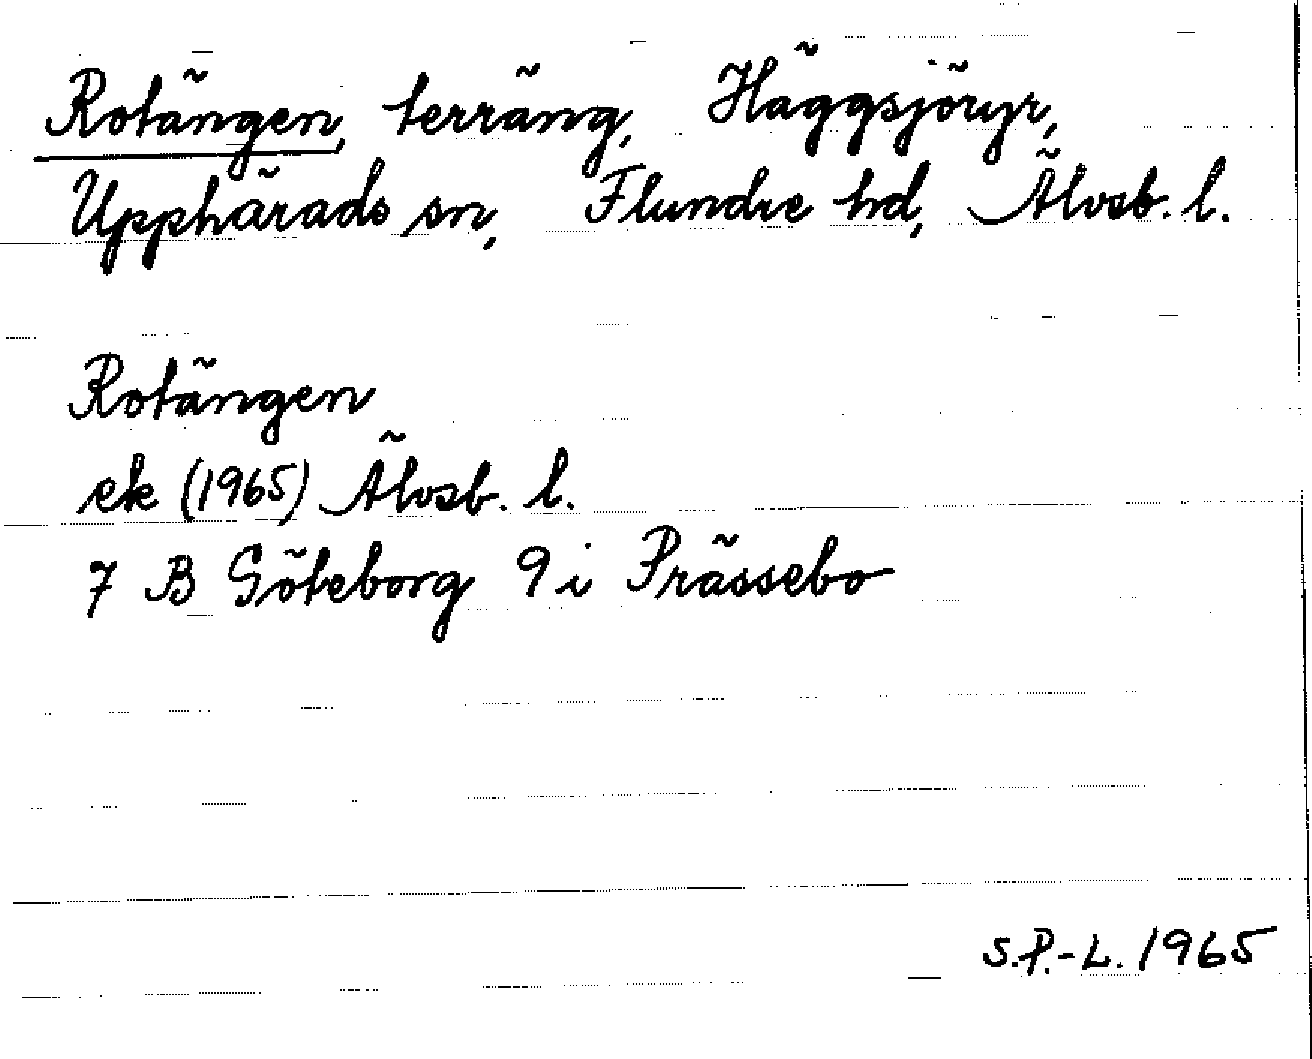 Rotängen, terräng, Häggsjöryr,
Upphärads sn, Flundre hd, Älvsb. l.
Rotängen
ek (1965) Älvsb. l.
7 B Göteborg 9 i Prässebo
S.P.-L. 1965